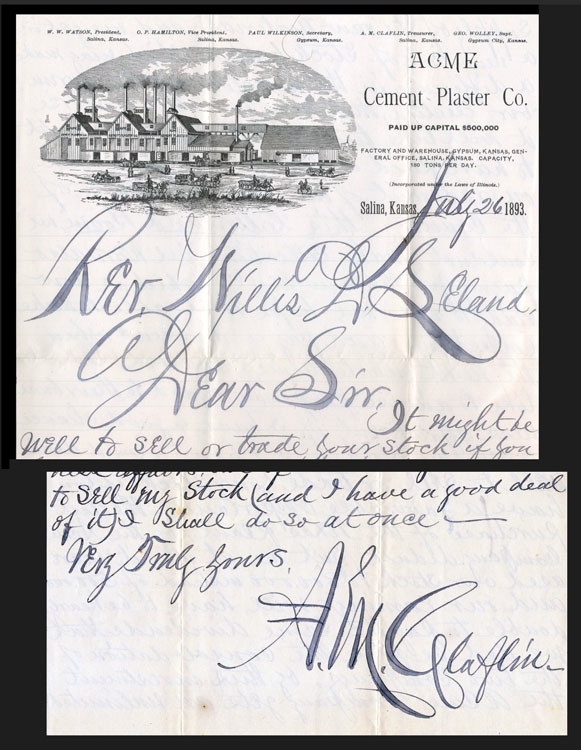 W. W. WATSON, President, O. P. HAMILTON, Vice President, PAUL WILKINSON, Secretary, A. M. CLAFLIN, Treasurer, GEO. WOLLEY, Supt.
Salina, Kansas. Salina, Kansas. Gypsum, Kansas. Salina, Kansas. Gypsum City, Kansas.
ACME
Cement Plaster Co.
PAID UP CAPITAL $500,000
FACTORY AND WAREHOUSE, GYPSUM, KANSAS, GEN-
ERAL OFFICE, SALINA, KANSAS. CAPACITY,
180 TONS PER DAY.
(Incorporated under the Laws of Illinois.)
Salina, Kansas, July 26 1893.
Rev. Willis D. Eland,
Dear Sir,
It might be
well to sell or trade your stock if you
to sell my stock (and I have a good deal
of it) I shall do so at once —
Very Truly yours,
A. M. Claflin